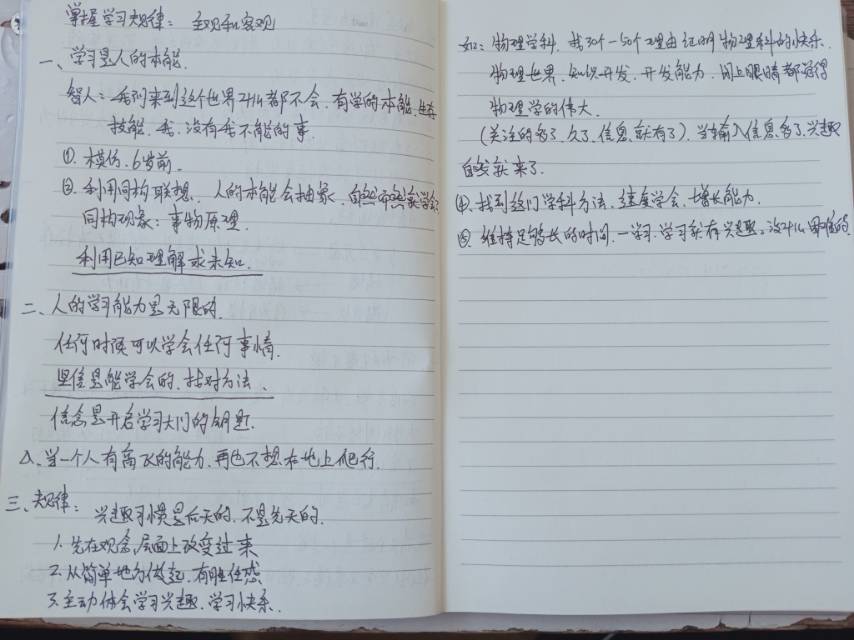 掌握学习规律： 主观和客观
一、学习是人的本能.
智人：我们来到这个世界什么都不会，有学的本能，生存
技能，我，没有我不能的事.
①. 模仿，6岁前.
②. 利用同构联想，人的本能会抽象，自然而然就学会
同构现象：事物原理.
利用已知理解求未知.
二、人的学习能力是无限的.
任何时候可以学会任何事情.
坚信是能学会的，找对方法、
信念是开启学习大门的钥匙.
△、当一个人有高飞的能力，再也不想在地上爬行.
三、规律： 兴趣习惯是后天的，不是先天的.
1. 先在观念层面上改变过来
2. 从简单地方做起，有胜任感
3. 主动体会学习兴趣，学习快乐.
如：物理学科，找30个-50个理由证明物理科的快乐.
物理世界，知识开发，开发能力，闭上眼睛都觉得
物理学的伟大.
(关注的多了，久了，信息就有了)，当输入信息多了，兴趣
自然就来了.
④. 找到这门学科方法，速度学会，增长能力.
⑤. 维持足够长的时间，一学习，学习就有兴趣。没什么困难的.